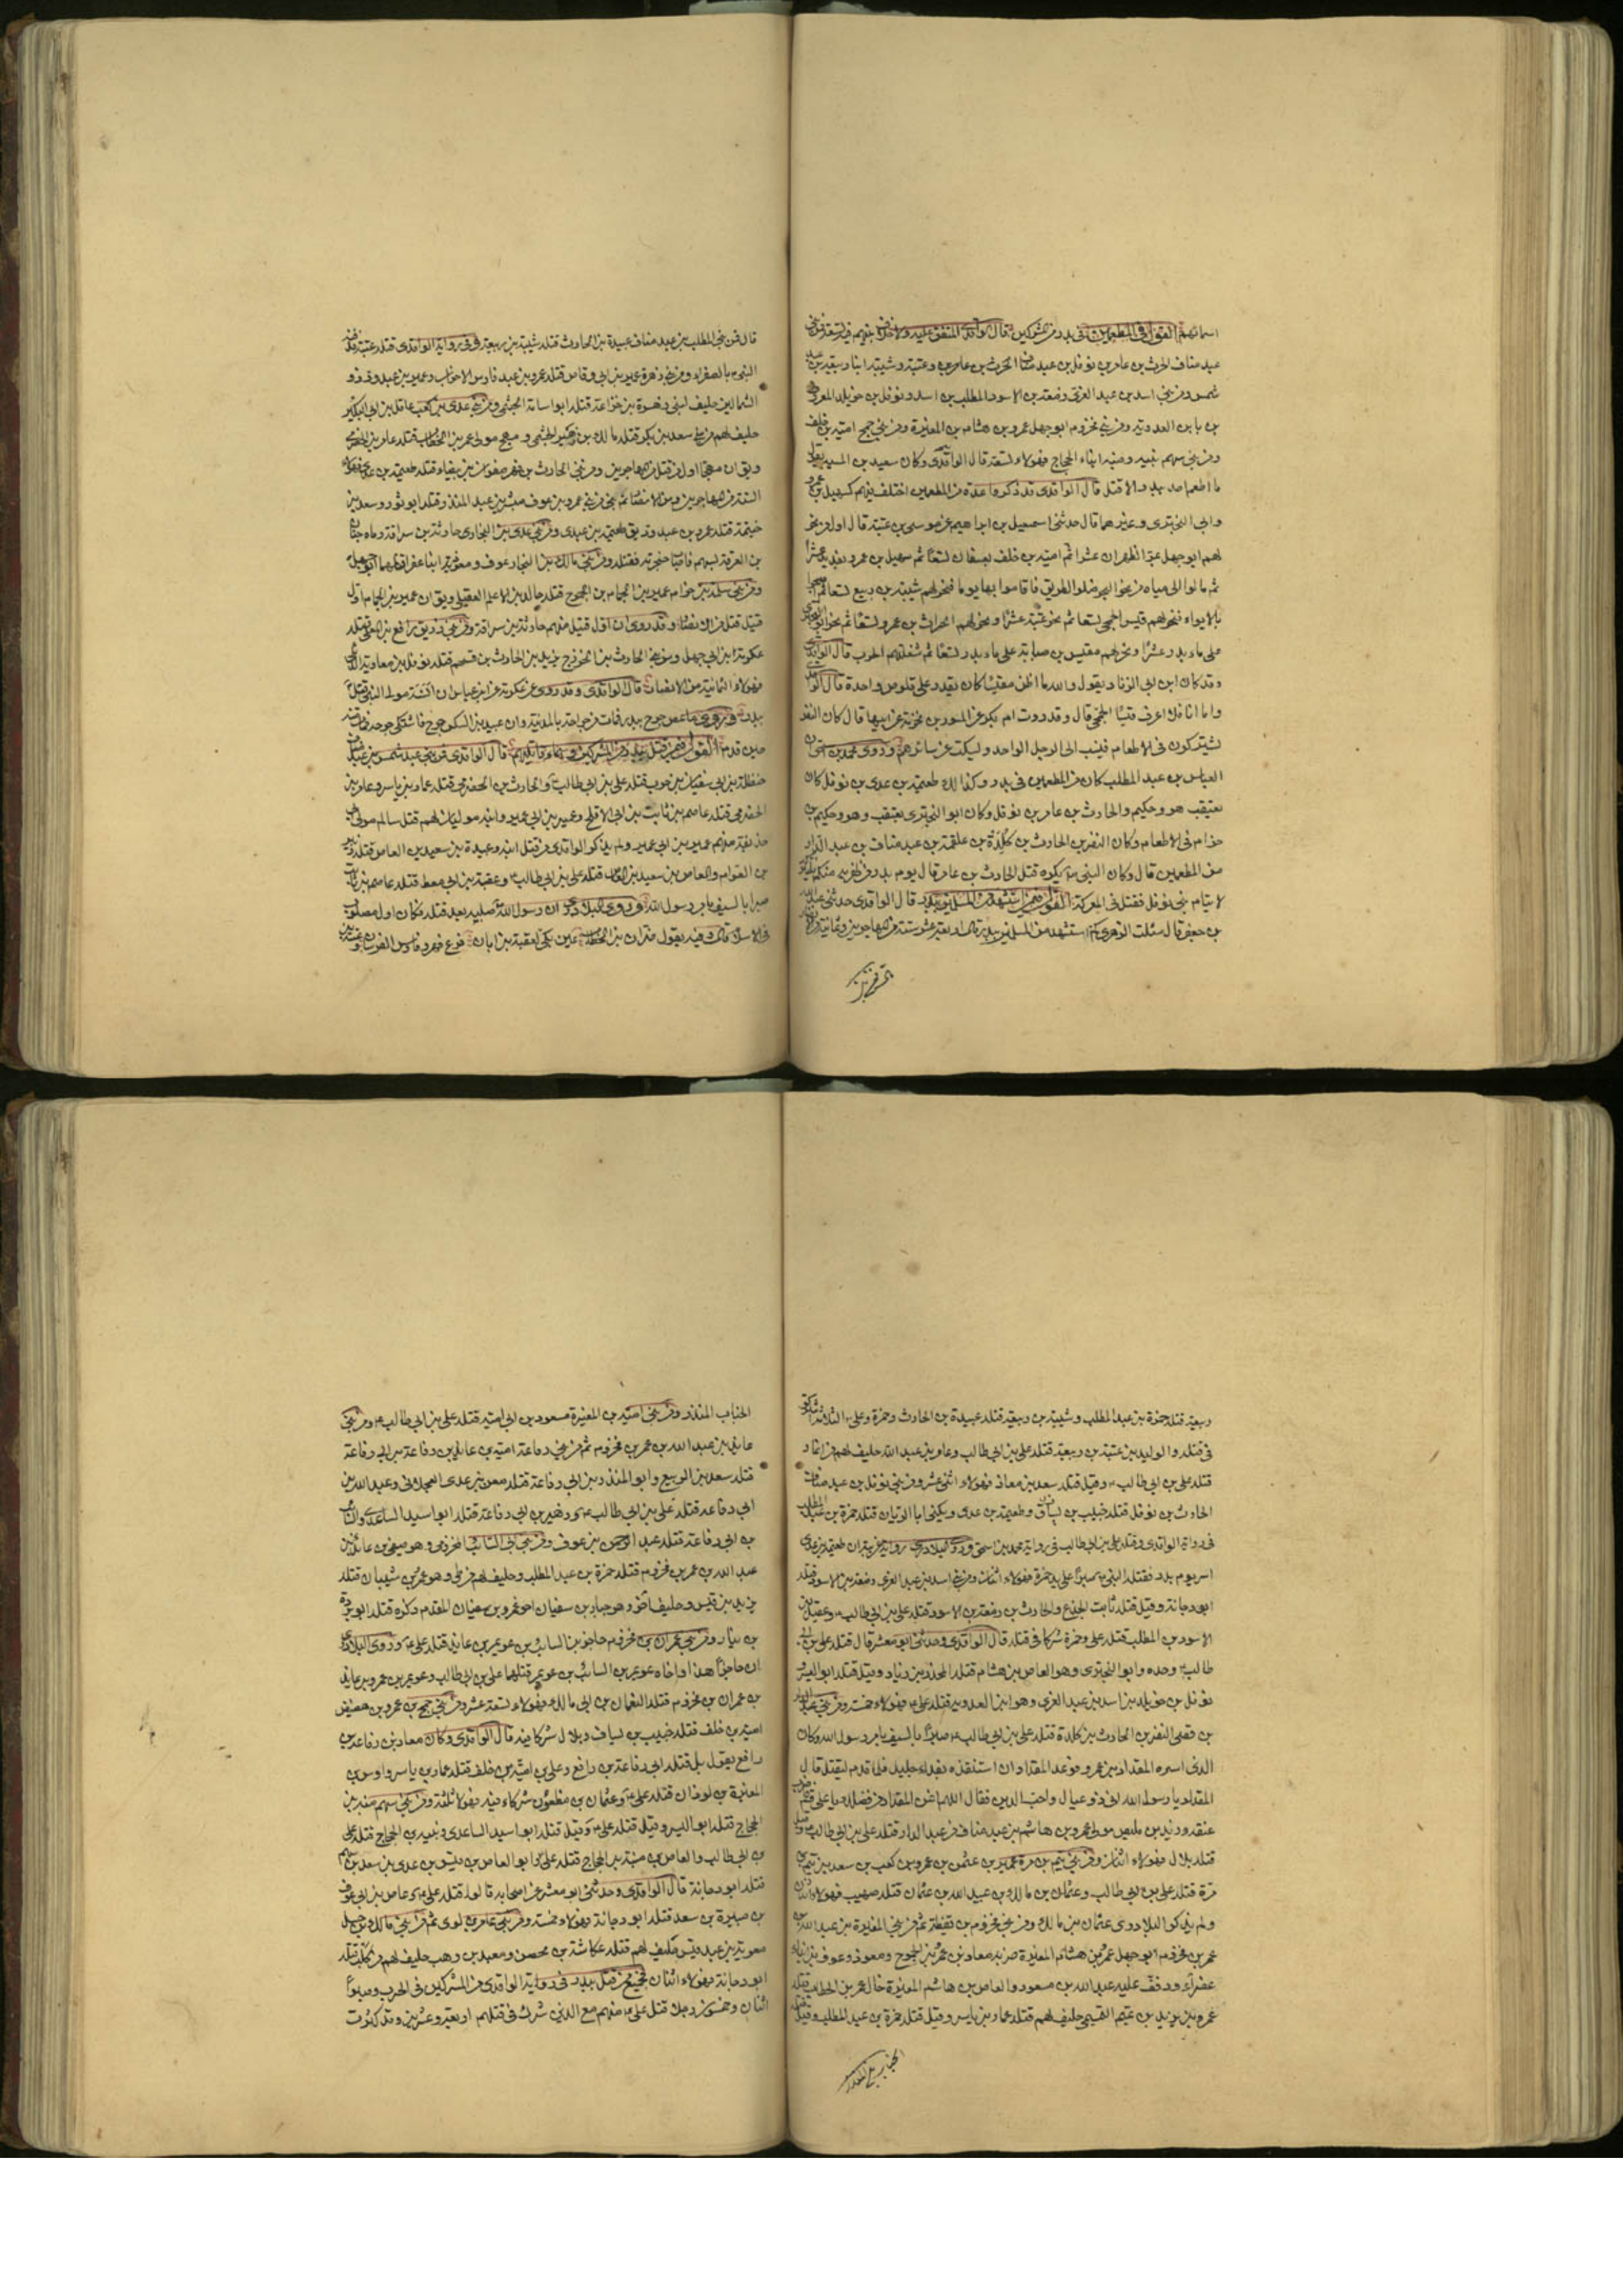 اسمائهم القول فى المطعمين فى بدر من المشركين قال الواقدى المتفق عليه ولا خلاف بينهم فيه تسعة فمن بنى
عبد مناف الحرث بن عامر بن نوفل بن عبد مناف وعتبة وشيبة ابنا ربيعة بن عبد
شمس ومن بنى اسد بن عبد العزى زمعة بن الاسود بن المطلب بن اسد ونوفل بن خويلد المعروف
بن بابن العدوية ومن بنى مخزوم ابوجهل عمرو بن هشام بن المغيرة ومن بنى جمح امية بن خلف
ومن بنى سهم نبيه ومنبه ابناء الحجاج فهولاء تسعة قال الواقدى وكان سعيد بن المسيب يقول
ما اطعم احد ببدر الا قتل قال الواقدى قد ذكروا عدة من المطعمين اختلف فيهم كسهيل بن عمرو
وابى البخترى وغيرهما قال حدثنى اسمعيل بن ابراهيم عن موسى بن عقبة قال اول من نحر
لهم ابوجهل بمر الظهران عشرا ثم امية بن خلف بعسفان تسعا ثم سهيل بن عمرو بقديد عشرا
ثم مالوا الى مياه من نحو البحر ضلوا الطريق فاقاموا بها يوما فنحر لهم شيبة بن ربيع تسعا ثم اصبحوا
بالابواء فنحر لهم قيس الجمحى تسعا ثم نحر عتبة عشرا ونحر لهم الحراث بن عمرو تسعا ثم نحر ابو البخترى
على ماء بدر عشرا ونحر لهم مقيس بن صبابة على ماء بدر تسعا ثم شغلتهم الحرب قال الواقدى
وقد كان ابن ابى الزناد يقول والله ما اظن مقيسا كان يقدر على قلوص واحدة قال الواقدى
واما انا فلا اعرف قيسا الجمحى قال وقد روت ام بكر عن المسور بن مخرمة عن ابيها قال كان النفر
يشتركون فى الاطعام فينسب الى الرجل الواحد ويسكت عن سائرهم وروى محمد بن اسحق ان
العباس بن عبد المطلب كان من المطعمين فى بدر وكذلك طعيمة بن عدى بن نوفل كان
يعتقب هو وحكيم والحارث بن عامر بن نوفل وكان ابو البخترى يعتقب وهو وحكيم بن
حزام فى الاطعام وكان النضر بن الحارث بن كلدة بن علقمة بن عبد مناف بن عبد الدار
من المطعمين قال وكان النبى ص يكره قتل الحارث بن عامر قال يوم بدر من ظفر به منكم فليتركه
لايتام بنى نوفل فقتل فى المعركة القول فيمن استشهد من المسلمين ببدر قال الواقدى حدثنى عبد الله
بن جعفر قال سئلت الزهرى كم استشهد من المسلمين ببدر قال اربعة عشر ستة من المهاجرين وثمانية من الانصار
قال فمن بنى المطلب بن عبد مناف عبيدة بن الحارث قتله شيبة بن ربيعة وفى رواية الواقدى قتله عتبة فدفنه
النبى ص بالصفراء ومن بنى زهرة عمير بن ابى وقاص قتله عمرو بن عبد فارس الاحزاب وعمير بن عبد ود ذو
الشمالين حليف لبنى زهرة بن خزاعة قتله ابو اسامة الجشمى ومن بنى عدى بن كعب عاقل بن ابى البكير
حليف لهم من بنى سعد بن بكر قتله مالك بن زهير الجشمى و مهجع مولى عمر بن الخطاب قتله عامر بن الحضرمى
ويق ان مهجعا اول من قتل من المهاجرين ومن بنى الحارث بن فهر صفوان بن بيضاء قتله طعيمة بن عدى فهولاء
الستة من المهاجرين ومن الانصار ثم بنى من بنى عمرو بن عوف مبشر بن عبد المنذر قتله ابو ثور وسعد بن
خيثمة قتله عمرو بن عبد ود ويق طعيمة بن عدى ومن بنى عدى بن النجار حارثة بن سراقة رماه حبان
بن العرقة بسهم فاصاب حنجرته فقتله ومن بنى مالك بن النجار عوف ومعوذ ابنا عفرا قتلهما ابوجهل
ومن بنى سلمة بن حرام عمير بن الحمام بن الجموح قتله خالد بن الاعلم العقيلى ويق ان عمير بن الحمام اول
قتيل قتل من الانصار وقد روى ان اول قتيل منهم حارثة بن سراقة ومن بنى زريق رافع بن المعلى قتله
عكرمة بن ابى جهل ومن بنى الحارث بن الخزرج يزيد بن الحارث بن قسحم قتله نوفل بن معاوية الديلى
فهولاء الثمانية من الانصار قال الواقدى وقد روى عن عكرمة عن ابن عباس ان انسة مولى النبى قتل
ببدر وروى ان معاذ بن ماعص جرح ببدر فمات من جراحته بالمدينة وان عبيد بن السكن جرح فاشتكى جرحه فمات منه
حين قدم القول فيمن قتل ببدر من المشركين واسماء قاتليهم قال الواقدى فمن بنى عبد شمس بن عبد مناف
حنظلة بن ابى سفيان بن حرب قتله على بن ابى طالب والحارث بن الحضرمى قتله عمار بن ياسر وعامر بن
الحضرمى قتله عاصم بن ثابت بن ابى الاقلح وعمير بن ابى عمير وابنه موليان لهم قتل سالم مولى ابى
حذيفة منهم عمير بن ابى عمير ولم يذكر الواقدى من قتل ابنه وعبيدة بن سعيد بن العاص قتله الزبير
بن العوام والعاص بن سعيد بن العاص قتله على بن ابى طالب وعقبة بن ابى معيط قتله عاصم بن ثابت
صبرا بالسيف بامر رسول الله وروى البلاذرى ان رسول الله صلبه بعد قتله فكان اول مصلوب
فى الاسلام قال وفيه يقول ضرار بن الخطاب عين بكى لعقبة بن ابان فرع فهر وفارس الفرسان
ربيعة قتله حمزة بن عبد المطلب وشيبة بن ربيعة قتله عبيدة بن الحارث وحمزة وعلى الثلاثة اشتركوا
فى قتله والوليد بن عتبة بن ربيعة قتله على بن ابى طالب وعامر بن عبد الله حليف لهم من انمار
قتله على بن ابى طالب وقيل قتله سعد بن معاذ فهولاء اثنى عشر ومن بنى نوفل بن عبد مناف
الحارث بن نوفل قتله خبيب بن يساف وطعيمة بن عدى ويكنى ابا الريان قتله حمزة بن عبد المطلب
فى رواية الواقدى وقتله على بن ابى طالب فى رواية محمد بن اسحق وروى البلاذرى رواية غريبة ان طعيمة بن عدى
اسر يوم بدر فقتله النبى ص صبرا على يد حمزة فهولاء اثنان ومن بنى اسد بن عبد العزى زمعة بن الاسود قتله
ابو دجانة وقيل قتله ثابت الجذع والحارث بن زمعة بن الاسود قتله على بن ابى طالب وعقيل بن
الاسود بن المطلب قتله على وحمزة شركا فى قتله قال الواقدى وحدثنى ابو معشر قال قتله على بن ابى
طالب وحده وابو البخترى وهو العاص بن هشام قتله المجذر بن زياد وقيل قتله ابو اليسر و
نوفل بن خويلد بن اسد بن عبد العزى وهو ابن العدوية قتله على فهولاء خمسة ومن بنى عبد الدار
بن قصى النضر بن الحارث بن كلدة قتله على بن ابى طالب صبرا بالسيف بامر رسول الله وكان
الذى اسره المقداد بن عمرو فوعد المقداد ان استنقذه بفداء جليل فلما قدم ليقتل قال
المقداد يا رسول الله انى ذو عيال واحب الدين فقال اللهم اغن المقداد من فضلك يا على قم فاضرب
عنقه وزيد بن مليص مولى عمرو بن هاشم بن عبد مناف من عبد الدار قتله على بن ابى طالب وقيل
قتله بلال فهولاء اثنان ومن بنى تيم بن مرة عمير بن عثمن بن عمرو بن كعب بن سعد بن تيم بن
مرة قتله على بن ابى طالب وعثمان بن مالك بن عبيد الله بن عثمان قتله صهيب فهولاء اثنان
ولم يذكر البلاذرى عثمان بن مالك ومن بنى مخزوم بن يقظة ثم من بنى المغيرة بن عبد الله بن
عمر بن مخزوم ابوجهل عمرو بن هشام المغيرة ضربه معاذ بن عمرو بن الجموح ومعوذ وعوف بن ابناء
عفراء وذفف عليه عبد الله بن مسعود والعاص بن هاشم المغيرة خال عمر بن الخطاب قتله
عمر ويزيد بن تميم التميمى حليف لهم قتله عمار بن ياسر وقيل قتله حمزة بن عبد المطلب وقيل
الحباب المنذر ومن بنى امية بن المغيرة مسعود بن ابى امية قتله على بن ابى طالب ومن بنى
عايذ بن عبد الله بن عمر بن مخزوم ثم من بنى رفاعة امية بن عايذ بن رفاعة بن ابى رفاعة
قتله سعد بن الربيع وابو المنذر بن ابى رفاعة قتله معن بن عدى العجلانى وعبد الله بن
ابى رفاعة قتله على بن ابى طالب وزهير بن ابى رفاعة قتله ابو اسيد الساعدى والسائب
بن ابى رفاعة قتله عبد الرحمن بن عوف ومن بنى ابى السائب المخزومى وهو صيفى بن عائذ بن
عبد الله بن عمر بن مخزوم قتله حمزة بن عبد المطلب وحليف لهم من طى وهو عمرو بن شيبان قتله
يزيد بن قيس وحليف اخر وهو جبار بن سفيان اخو عمرو بن سفيان المقدم ذكره قتله ابو بردة
بن نيار ومن بنى عمران بن مخزوم حاجز بن السائب بن عويمر بن عايذ قتله على وروى البلاذرى
ان حاجزا هذا واخاه عويمر بن السائب بن عويمر قتلهما على بن ابى طالب وعويمر بن عمرو بن عايذ
بن عمران بن مخزوم قتله النعمان بن ابى مالك فهولاء تسعة عشر ومن بنى جمح بن عمرو بن هصيص
امية بن خلف قتله خبيب بن يساف وبلال شركا فيه قال الواقدى وكان معاذ بن رفاعة بن
رافع يقول بل قتله ابى رفاعة بن رافع وعلى بن امية بن خلف قتله عمار بن ياسر واوس بن
المغيرة بن لوذان قتله على وعثمان بن مظعون شركاء فيه فهولاء ثلثة ومن بنى سهم منبه بن
الحجاج قتله ابو اليسر وقيل قتله على وقيل قتله ابو اسيد الساعدى ونبيه بن الحجاج قتله على
بن ابى طالب والعاص بن منبه بن الحجاج قتله على وابو العاص بن قيس بن عدى بن سعد بن سهم
قتله ابو دجانة قال الواقدى وحدثنى ابو معشر عن اصحابه قالوا قتله على وعاص بن ابى عوف
بن صبيرة بن سعد قتله ابو دجانة فهولاء خمسة ومن بنى عامر بن لوى ثم من بنى مالك بن حسل
معوية بن عبد قيس حليف لهم قتله عكاشة بن محصن ومعبد بن وهب حليف لهم من كلب قتله
ابو دجانة فهولاء اثنان فجميع من قتل ببدر فى رواية الواقدى من المشركين فى الحرب وصبرا
اثنان وخمسون رجلا قتل على منهم مع الذين شرك فى قتلهم اربعة وعشرين وقد كثرت